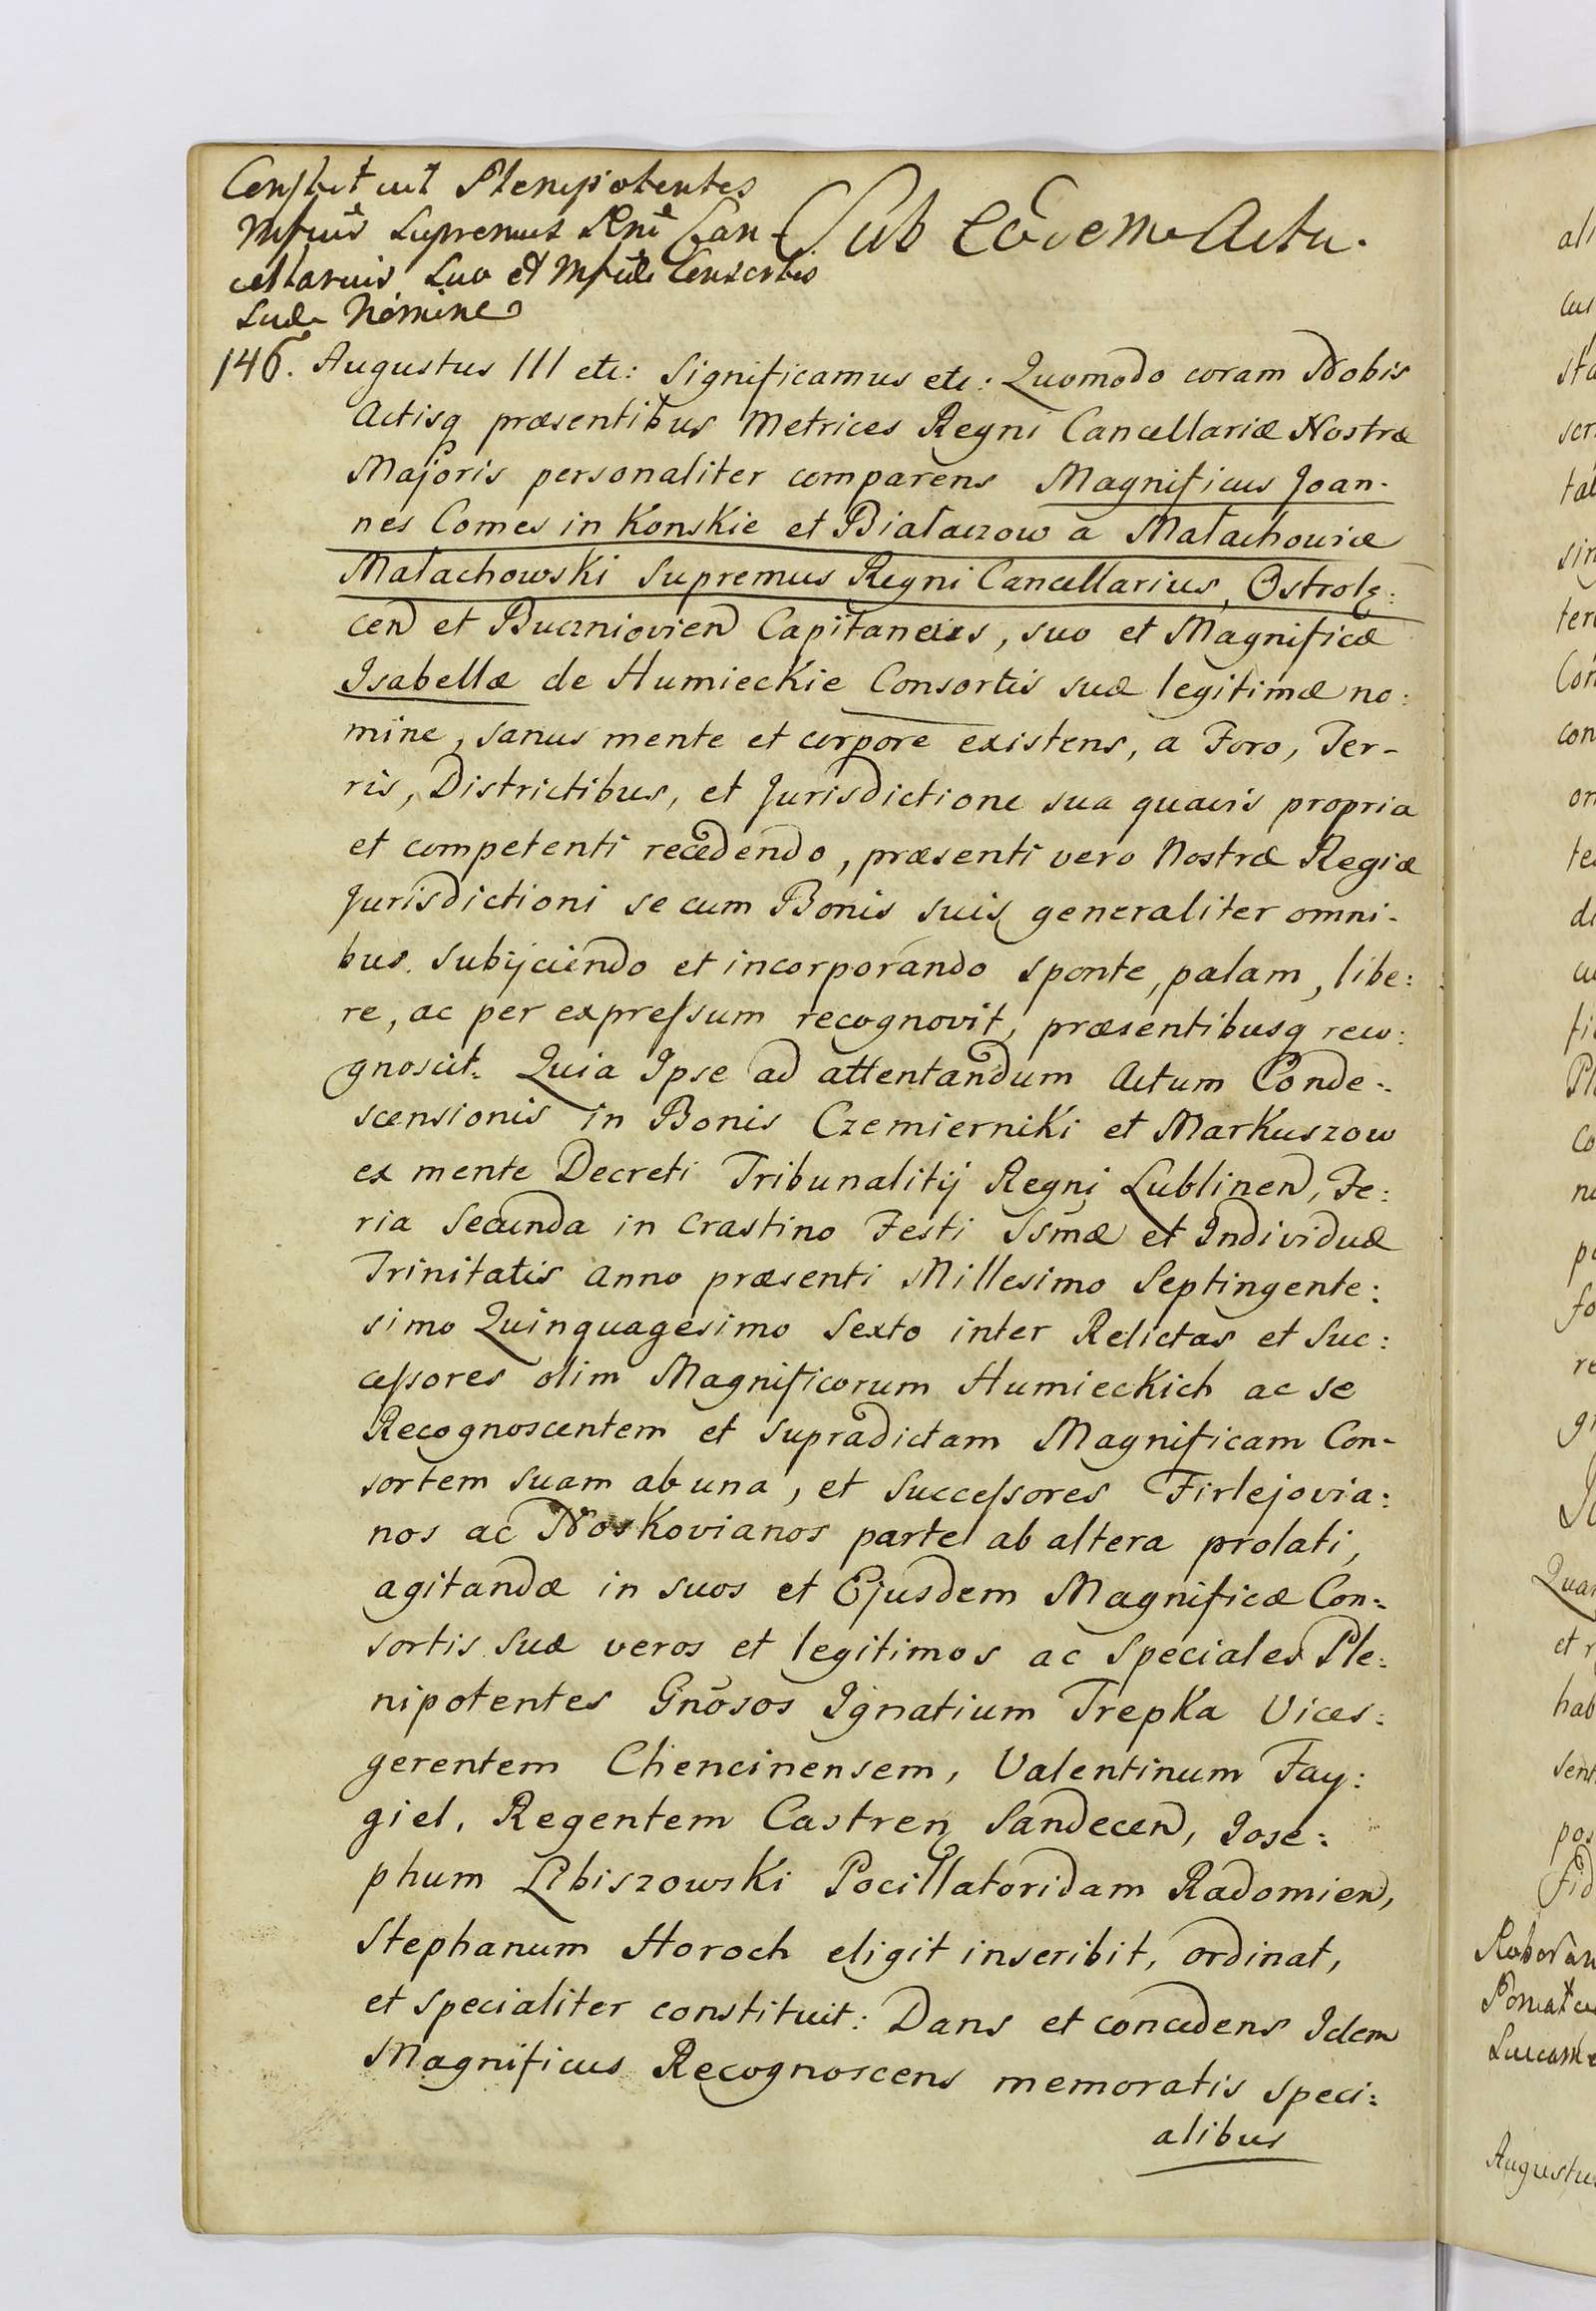 Constituit Plenipotentes
Mfcus Supremus Rni Can-
cellarius Suo et Mfcæ Consortis
Suæ Nomine
Sub Eodem Actu.
146. Augustus III etc: Significamus etc: Quomodo coram Nobis
Actisq præsentibus Metrices Regni Cancellariæ Nostræ
Majoris personaliter comparens Magnificus Joan-
nes Comes in Konskie et Białaczow a Małachowice
Małachowski Supremus Regni Cancellarius, Ostrołę:
cen et Buczniovien Capitaneus, suo et Magnificæ
Isabellæ de Humieckie Consortis suæ legitimæ no:
mine, sanus mente et corpore existens, a Foro, Ter-
ris, Districtibus, et Jurisdictione sua quavis propria
et competenti recedendo, præsenti vero Nostræ Regiæ
Jurisdictioni se cum Bonis suis generaliter omni-
bus subijciendo et incorporando sponte, palam, libe:
re, ac per expressum recognovit, præsentibusq reco:
gnoscit. Quia Ipse ad attentandum Actum Conde-
scensionis in Bonis Czemierniki et Markuszow
ex mente Decreti Tribunalitij Regni Lublinen, Fe:
ria Secunda in Crastino Festi Ssmæ et Individuæ
Trinitatis Anno præsenti Millesimo Septingente:
simo Quinquagesimo Sexto inter Relictas et Suc:
cessores olim Magnificorum Humieckich ac se
Recognoscentem et supradictam Magnificam Con-
sortem suam ab una, et Successores Firlejovia:
nos ac Noskovianos parte ab altera prolati,
agitandæ in suos et Ejusdem Magnificæ Con-
sortis suæ veros et legitimos ac Speciales Ple:
nipotentes Gnosos Ignatium Trepka Vices:
gerentem Chencinensem, Valentinum Fay:
giel, Regentem Castren Sandecen, Jose:
phum Libiszowski Pocillatoridam Radomien,
Stephanum Horoch eligit inscribit, ordinat,
et specialiter constituit: Dans et concedens Idem
Magnificus Recognoscens memoratis speci:
alibus